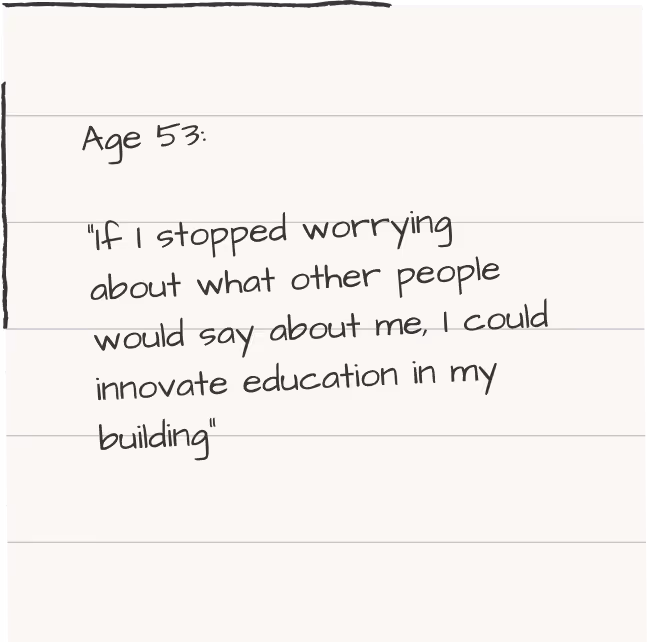 Age 53:
"If I stopped worrying
about what other people
would say about me, I could
innovate education in my
building"